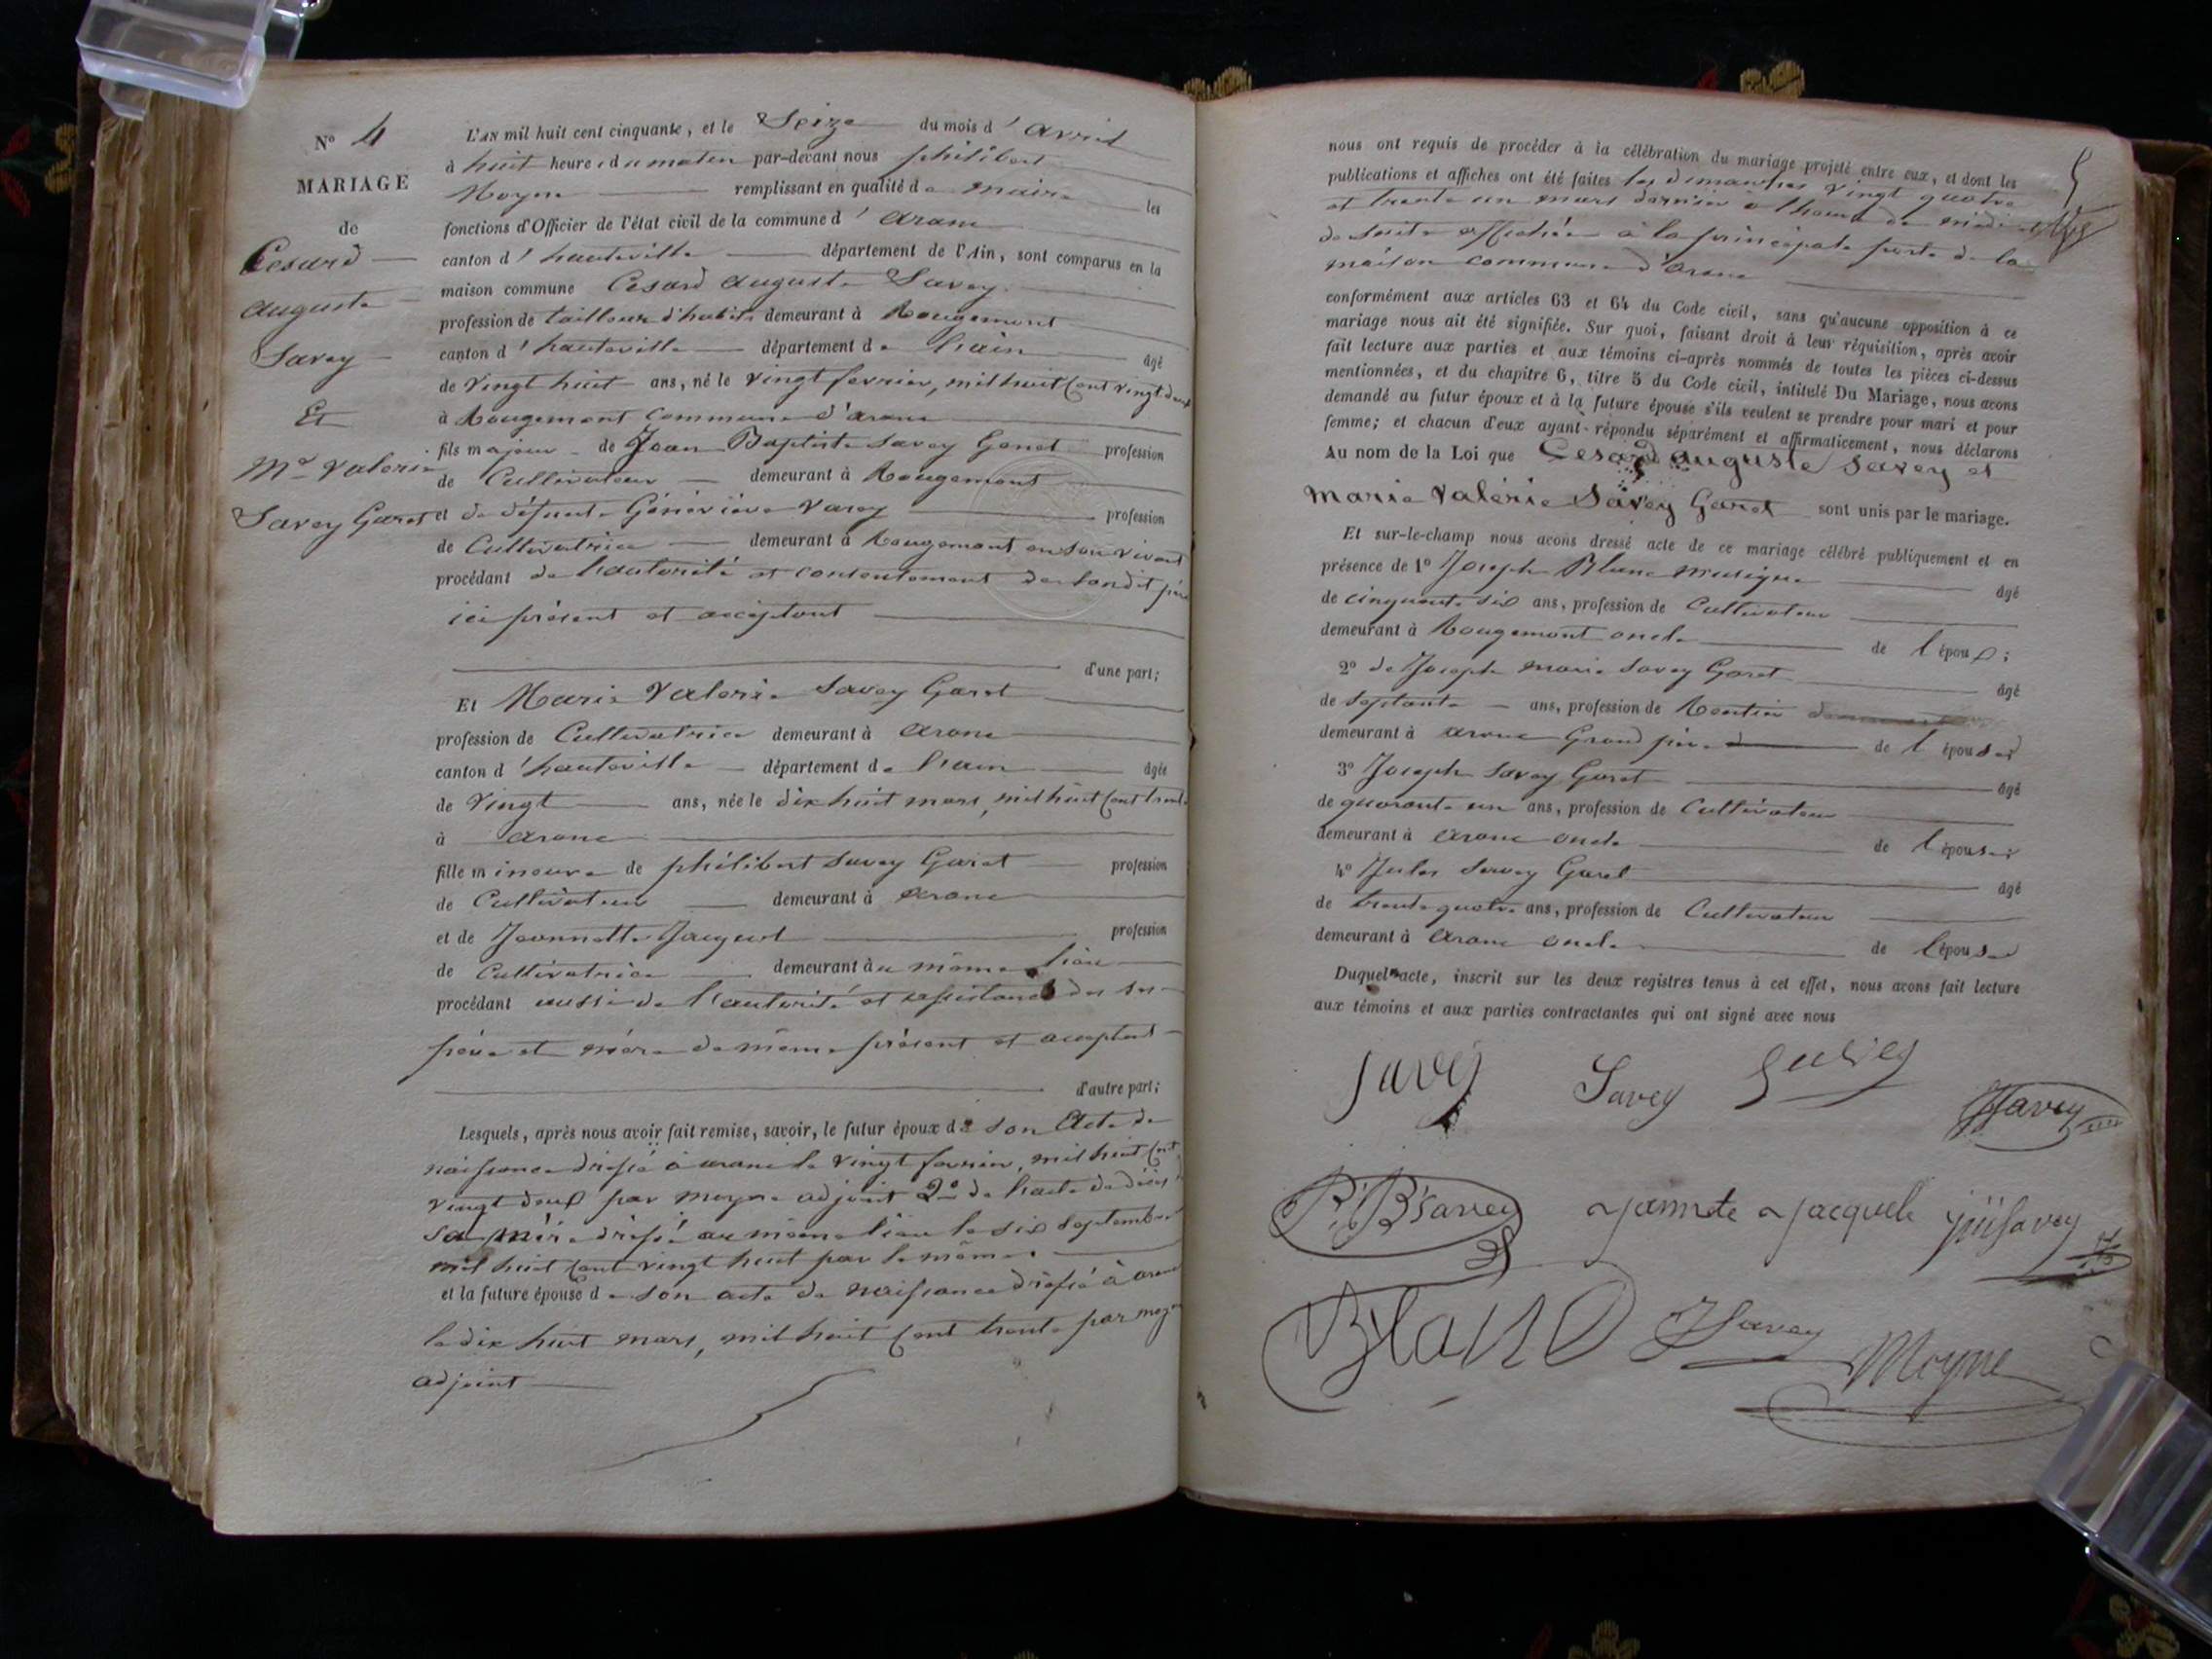 N° 4
MARIAGE
de
Cesard
auguste
Savey
Et
Me Valerie
Savey Garet
L'AN mil huit cent cinquante, et le Seize du mois d'avril
à huit heure du maten par-devant nous philibert
Moyne remplissant en qualité de maire les
fonctions d'Officier de l'état civil de la commune d'aranc
canton d'hauteville département de l'Ain, sont comparus en la
maison commune Cesard auguste Savey
profession de tailleur d'habits demeurant à Rougemont
canton d'hauteville département de l'ain âgé
de vingt huit ans, né le vingt fevrier, mil huit Cent vingt deux
à Rougemont Commune d'aranc
fils majeur de Jean Baptiste Savey Genet profession
de Cultivateur demeurant à Rougemont
et de défunte Géneviève Varey profession
de Cultivatrice demeurant à Rougemont en son vivant
procédant de l'autorité et consentement de sondit père
ici présent et acceptant
d'une part;
Et Marie Valerie Savey Garet
profession de Cultivatrice demeurant à aranc
canton d'hauteville département de l'ain âgée
de vingt ans, née le dix huit mars, mil huit Cent trente
à aranc
fille mineure de philibert Savey Garet profession
de Cultivateur demeurant à aranc
et de Jeannette Jacquet profession
de Cultivatrice demeurant au même lieu
procédant aussi de l'autorité et assistance de ses
père et mère de même présent et acceptant
d'autre part;
Lesquels, après nous avoir fait remise, savoir, le futur époux de son Acte de
naissance dressé à aranc le vingt fevrier, mil huit Cent
vingt deux par moyne adjoint 2° de l'acte de décès
sa mère dressé au même lieu le six septembre
mil huit Cent vingt huit par le même
et la future épouse de son acte de naissance dressé à aranc
le dix huit mars, mil huit Cent trente par moyne
adjoint
nous ont requis de procéder à la célébration du mariage projeté entre eux, et dont les
publications et affiches ont été faites les dimanches vingt quatre
et trente un mars dernier à l'heure de midi et
de suite affichée à la principale porte de la
maison commune d'aranc
conformément aux articles 63 et 64 du Code civil, sans qu'aucune opposition à ce
mariage nous ait été signifiée. Sur quoi, faisant droit à leur réquisition, après avoir
fait lecture aux parties et aux témoins ci-après nommés de toutes les pièces ci-dessus
mentionnées, et du chapitre 6, titre 5 du Code civil, intitulé Du Mariage, nous avons
demandé au futur époux et à la future épouse s'ils veulent se prendre pour mari et pour
femme; et chacun d'eux ayant répondu séparément et affirmativement, nous déclarons
Au nom de la Loi que Cesard auguste Savey et
Marie Valérie Savey Garet sont unis par le mariage.
Et sur-le-champ nous avons dressé acte de ce mariage célébré publiquement et en
présence de 1° Joseph Blanc musique âgé
de cinquante six ans, profession de Cultivateur
demeurant à Rougemont oncle de l'époux;
2° de Joseph marie Savey Garet âgé
de septante ans, profession de Rentier
demeurant à aranc Grand père de l'épouse
3° Joseph Savey Garet âgé
de quarante un ans, profession de Cultivateur
demeurant à aranc oncle de l'épouse
4° Jules Savey Garet âgé
de trente quatre ans, profession de Cultivateur
demeurant à aranc oncle de l'épouse
Duquel acte, inscrit sur les deux registres tenus à cet effet, nous avons fait lecture
aux témoins et aux parties contractantes qui ont signé avec nous
Savey Savey Savey
JSavey
Savey Jannete Jacquete Savey
Blanc JSavey Moyne